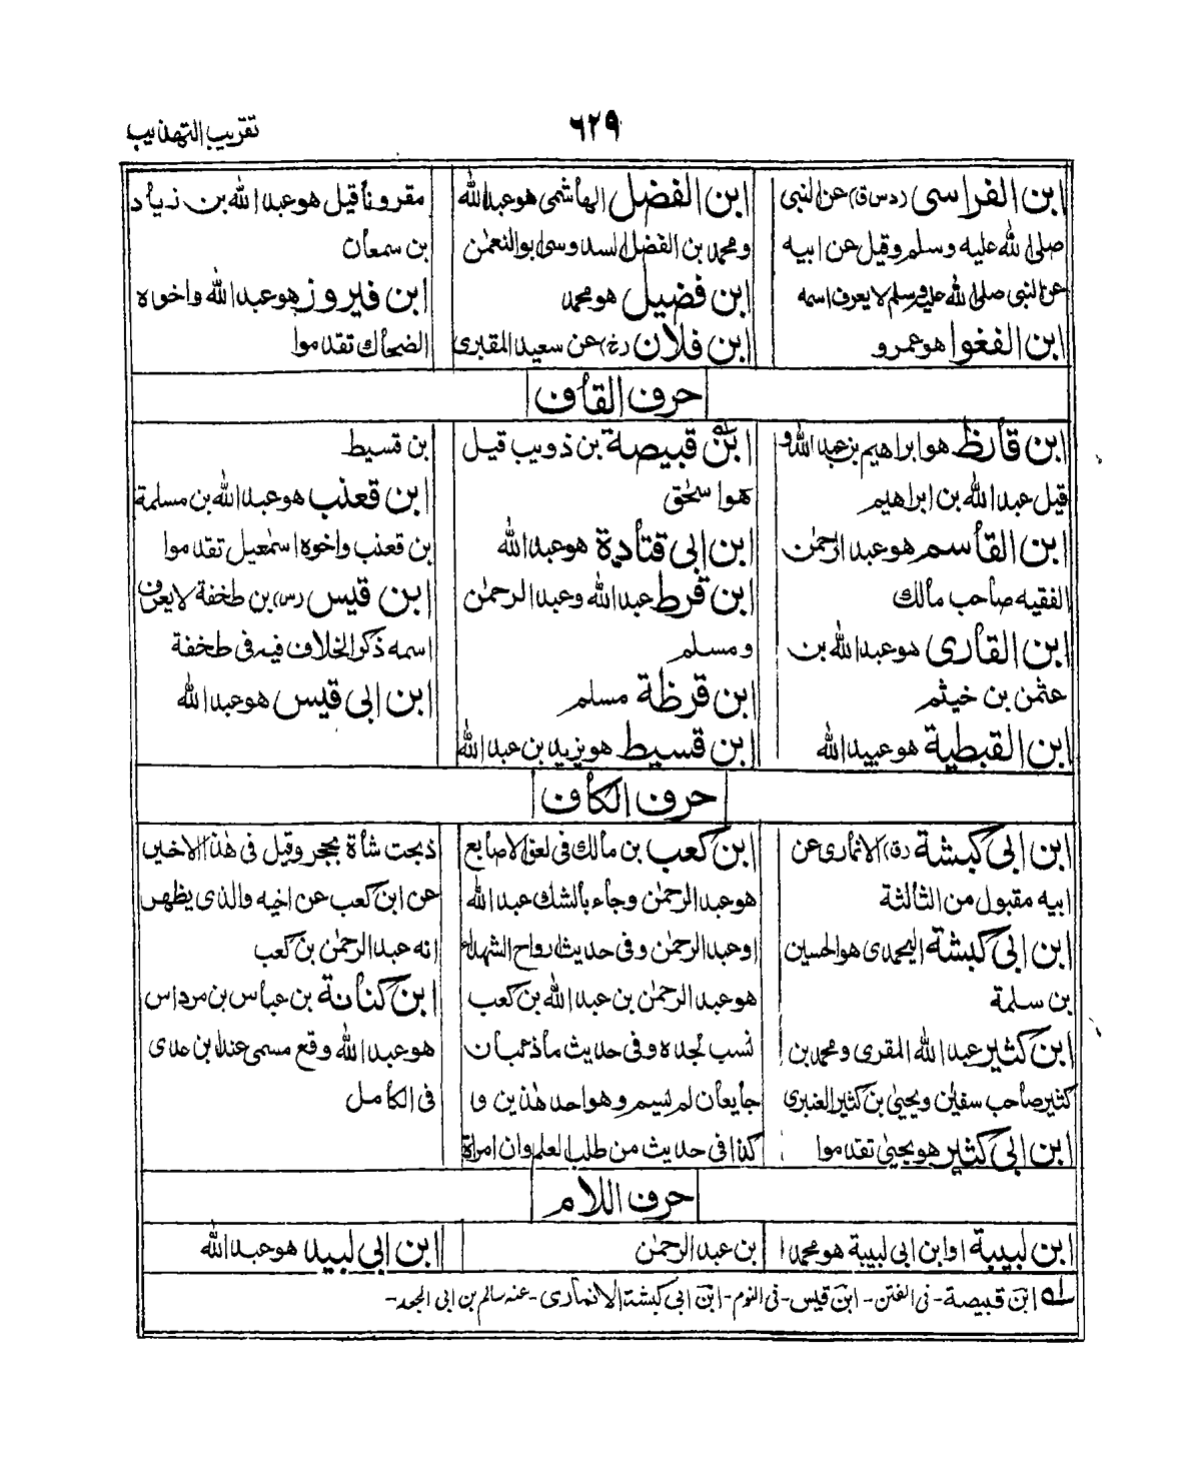 تقريب التهذيب
٦٢٩
ابن الفراسى (د س ق) عن النبى
صلى الله عليه وسلم وقيل عن ابيه
عن النبى صلى الله عليه وسلم لا يعرف اسمه
ابن الفغوا هو عمرو
ابن الفضل الهاشمى هو عبد الله
ومحمد بن الفضل السدوسى ابو النعمٰن
ابن فضيل هو محمد
ابن فلان (خ) عن سعيد المقبرى
مقرونا قيل هو عبد الله بن زياد
بن سمعان
ابن فيروز هو عبد الله واخوه
الضحاك تقدموا
حرف القاف
ابن قارظ هو ابراهيم بن عبد الله و
قيل عبد الله بن ابراهيم
ابن القاسم هو عبد الرحمٰن
الفقيه صاحب مالك
ابن القارى هو عبد الله بن
عثمٰن بن خيثم
ابن القبطية هو عبيد الله
ابن قبيصة بن ذويب قيل
هو اسحٰق
ابن ابى قتادة هو عبد الله
ابن قرط عبد الله وعبد الرحمٰن
ومسلم
ابن قرظة مسلم
ابن قسيط هو يزيد بن عبد الله
بن قسيط
ابن قعنب هو عبد الله بن مسلمة
بن قعنب واخوه اسمٰعيل تقدموا
ابن قيس (س) بن طخفة لا يعرف
اسمه ذكر الخلاف فيه فى طخفة
ابن ابى قيس هو عبد الله
حرف الكاف
ابن ابى كبشة (ق) الانمارى عن
ابيه مقبول من الثالثة
ابن ابى كبشة اليحمدى هو الحسين
بن سلمة
ابن كثير عبد الله المقرى ومحمد بن
كثير صاحب سفيٰن ويحيىٰ بن كثير العنبرى
ابن ابى كثير هو يحيىٰ تقدموا
ابن كعب بن مالك فى لعق الاصابع
هو عبد الرحمٰن وجاء بالشك عبد الله
او عبد الرحمٰن وفى حديث ارواح الشهداء
هو عبد الرحمٰن بن عبد الله بن كعب
نسب لجده وفى حديث ما ذئبان
جايعان لم يسم وهو احد هٰذين و
كذا فى حديث من طلب العلم وان امراة
ذبحت شاة بحجر وقيل فى هٰذا الاخير
عن ابن كعب عن اخيه والذى يظهر
انه عبد الرحمٰن بن كعب
ابن كنانة بن عباس بن مرداس
هو عبد الله وقع مسمى عند ابن عدى
فى الكامل
حرف اللام
ابن لبيبة او ابن ابى لبيبة هو محمد
بن عبد الرحمٰن
ابن ابى لبيد هو عبد الله
له ابن قبيصة- فى الفتن- ابن قيس- فى النوم- ابن ابى كبشة الانمارى- عنه سالم بن ابى الجعد-